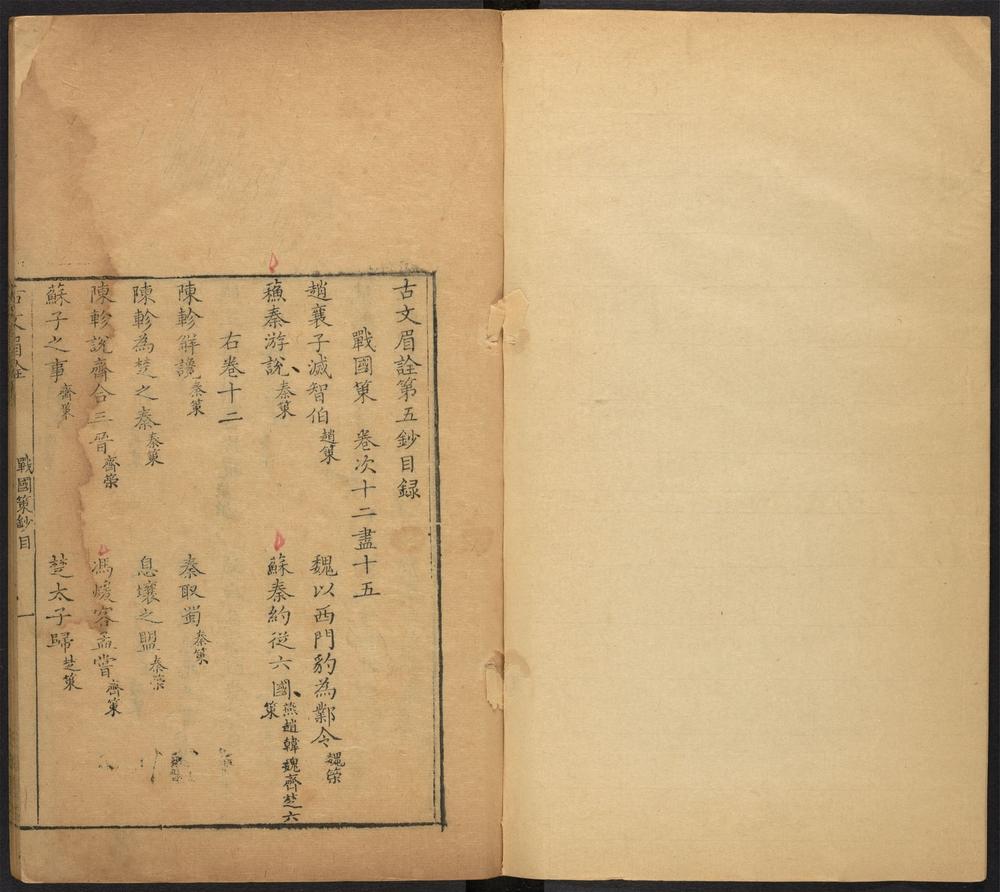 古文眉詮第五鈔目録
戰國策　卷次十二盡十五
趙襄子滅智伯趙策　魏以西門豹為鄴令魏策
蘓秦游說秦策　蘇秦約從六國燕趙韓魏齊楚六策
右卷十二
陳軫觧讒秦策　秦取蜀秦策
陳軫為楚之秦秦策　息壤之盟秦策
陳軫説齊合三晉齊策　馮煖客孟嘗齊策
蘇子之事齊策　楚太子歸楚策
古文眉詮　戰國策鈔目　一